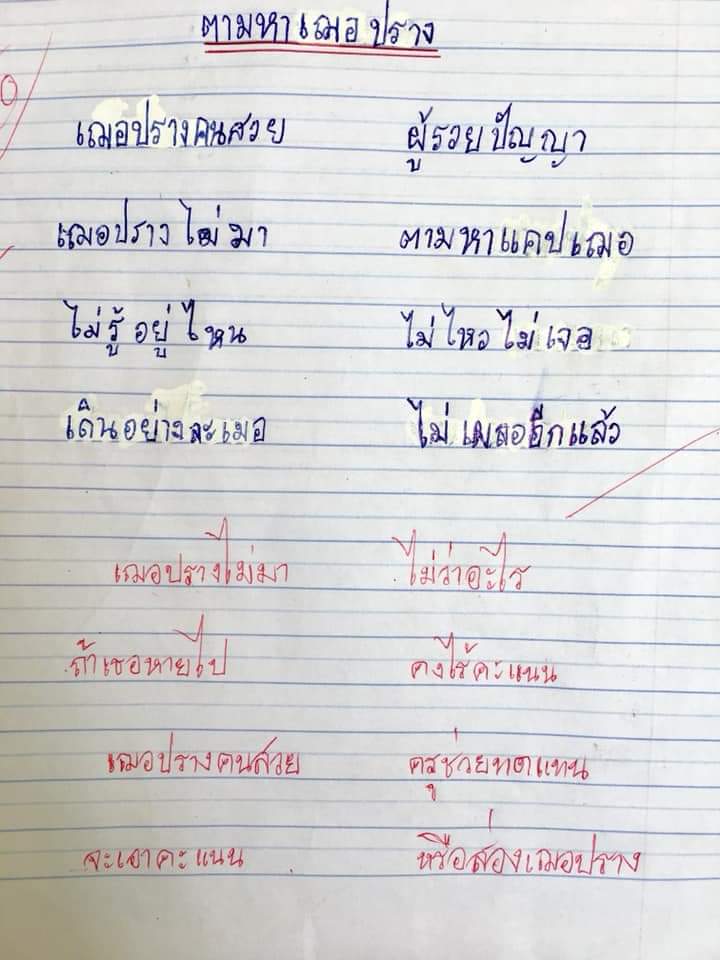 ตามหาเฌอปราง
เฌอปรางคนสวย ผู้รวยปัญญา
เฌอปรางไม่มา ตามหาแคปเฌอ
ไม่รู้อยู่ไหน ไม่ไหวไม่เจอ
เดินอย่างละเมอ ไม่เผลออีกแล้ว
เฌอปรางไม่มา ไม่ว่าอะไร
ถ้าเธอหายไป คงไร้คะแนน
เฌอปรางคนสวย ครูช่วยทดแทน
จะเอาคะแนน หรือส่องเฌอปราง